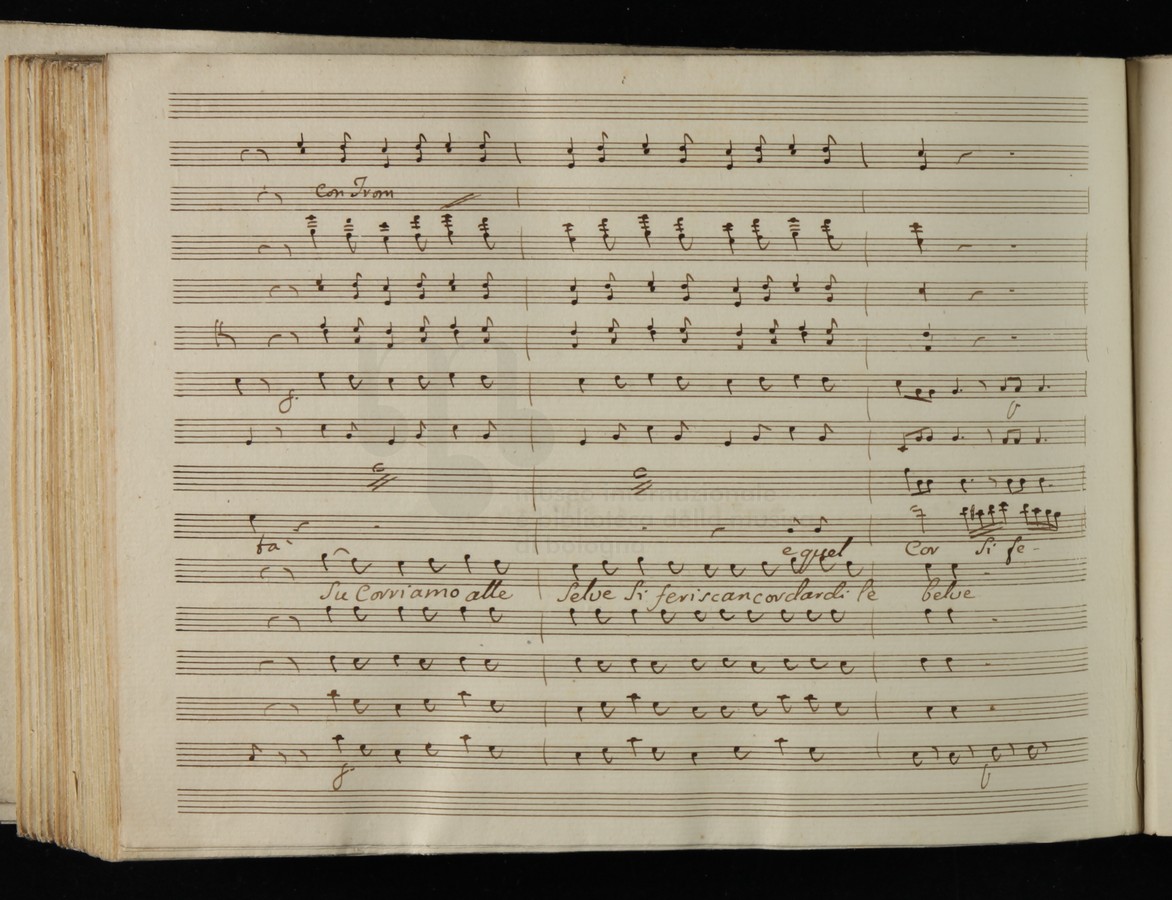 Con Trom
f.
f
museo internazionale
e biblioteca della musica
di bologna
ta' e quel Cor si fe-
Su Corriamo alle Selve Si feriscan cordardi le belve
f.
f